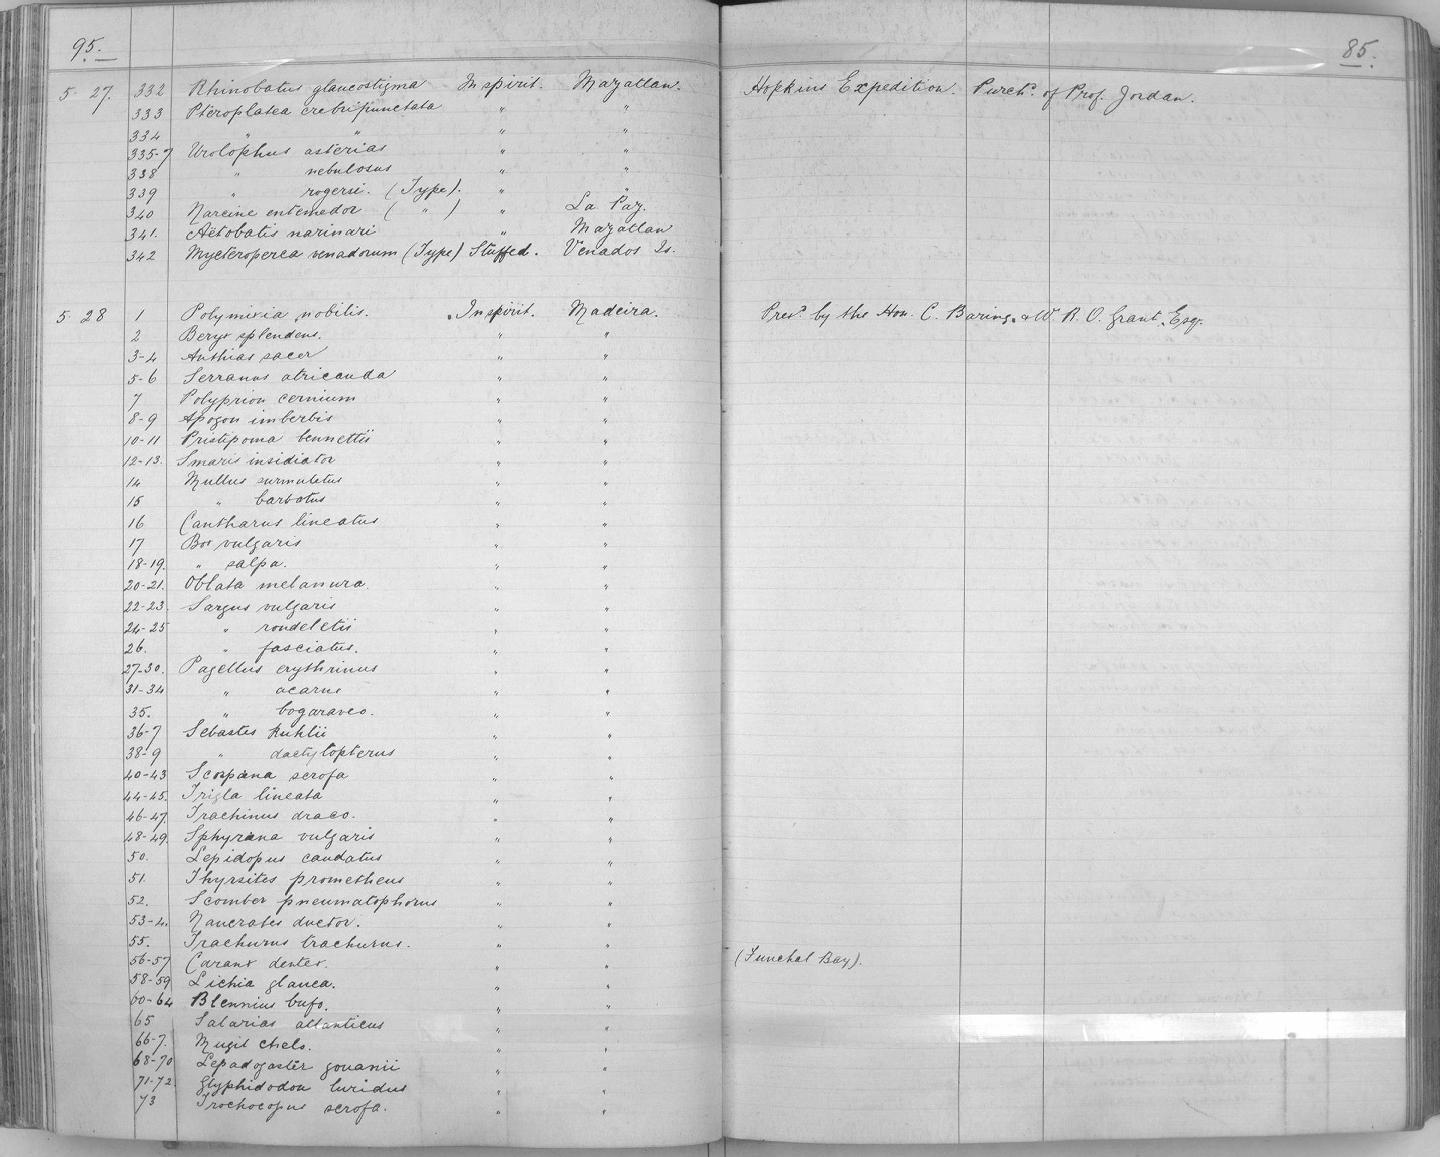 95.
85.
5. 27. 332 Rhinobatus glaucostigma In spirit. Mazatlan. Hopkins Expedition. Purchd. of Prof. Jordan.
333 Pteroplatea crebripunctata " "
334 " " " "
335-7 Urolophus asterias " "
338 " nebulosus " "
339 " rogersi. (Type). " "
340 Narcine entemedor ( " ) " La Paz.
341. Aetobatis narinari " Mazatlan
342 Mycteroperca venadorum (Type) Stuffed. Venados Is.
5. 28 1 Polymixia nobilis. In spirit. Madeira. Presd. by the Hon. C. Baring. & W. R. O. Grant, Esq.
2 Beryx splendens. " "
3-4 Anthias sacer " "
5-6 Serranus atricauda " "
7 Polyprion cernium " "
8-9 Apogon imberbis " "
10-11 Pristipoma bennettii " "
12-13. Smaris insidiator " "
14 Mullus surmuletus " "
15 " barbatus " "
16 Cantharus lineatus " "
17 Box vulgaris " "
18-19. " salpa. " "
20-21. Oblata melanura. " "
22-23. Sargus vulgaris " "
24-25 " rondeletii " "
26. " fasciatus. " "
27-30. Pagellus erythrinus " "
31-34 " acarne " "
35. " bogaraveo. " "
36-7 Sebastes kuhlii " "
38-9 " dactylopterus " "
40-43 Scorpæna scrofa " "
44-45. Trigla lineata " "
46-47. Trachinus draco. " "
48-49. Sphyræna vulgaris " "
50. Lepidopus caudatus " "
51. Thyrsites prometheus " "
52. Scomber pneumatophorus " "
53-4. Naucrates ductor. " "
55. Trachurus trachurus. " "
56-57 Caranx dentex. " " (Funchal Bay).
58-59 Lichia glauca. " "
60-64 Blennius bufo. " "
65 Salarias atlanticus " "
66-7. Mugil chelo. " "
68-70 Lepadogaster gouanii " "
71-72 Glyphidodon luridus " "
73 Trochocopus scrofa. " "